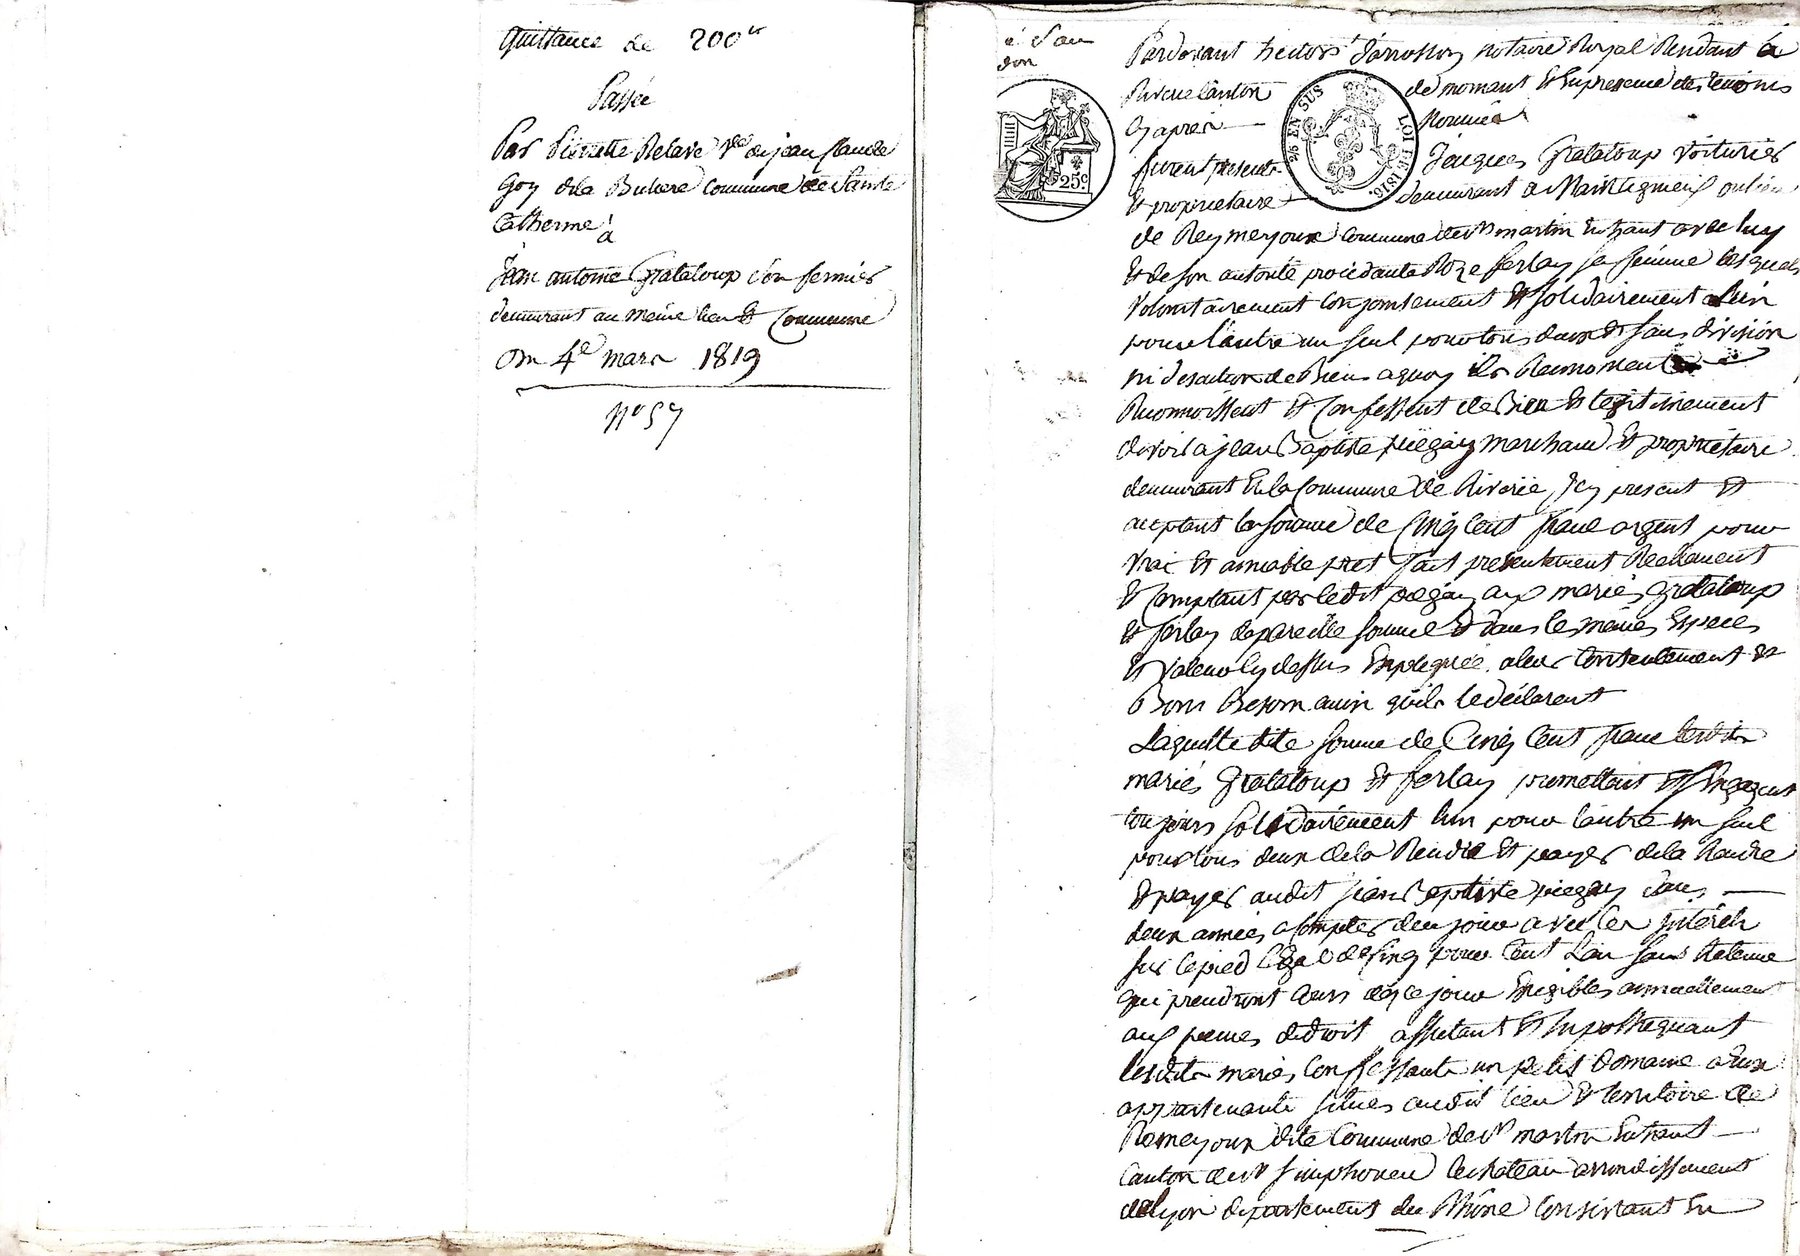 Quittance de 200 tt
Passée
Par Pierrette Delare Vve de jean Claude
Goy de la Buliere Commune de Sainte
Catherine
à
Jean antoine Grataloup son fermier
demeurant au même lieu et Commune
Du 4e mars 1819
N° 57
Pardevant hector notaire Royal Resident à
Riverie Canton de mornant et En presence des temoins
Cy après Nommés
furent presents Jacques Grataloup Voiturier
Et proprietaire demeurant a au lieu
de Reymeyoux Commune de St martin En haut avec luy
Et de son autorité procédante Roze ferlay sa femme lesquels
Volontairement Conjointement Et Solidairement L'un
pour l'autre un seul pour tous deux Et sans division
ni de Biens a quoy ils Renoncent
Reconnoissent Et Confessent de Bien Et legitimement
devoir a jean Baptiste piegay marchand Et proprietaire
demeurant En la Commune de Riverie, Icy present Et
acceptant la somme de Cinq Cent franc argent pour
Vrai Et amiable pret fait presentement Reellement
Et Comptant par ledit piegay aux mariés grataloup
Et ferlay de pareille somme Et dans les mêmes Especes
Et Valeur Cy dessus Expliquée a leur Contentement Et
Bons Besoin ainsi qu'ils le déclarent
Laquelle dite somme de Cinq Cent franc lesdits
mariés grataloup Et ferlay promettent Et S'Engagent
toujours Solidairement l'un pour l'autre un seul
pour tous deux de la Rendre Et payer de la Rendre
Et payer audit jean Baptiste piegay dans
deux années a Compter de ce jour avec les intérêts
sur le pied légal de Cinq pour Cent L'an sans Retenue
qui prendront Cours dès ce jour Exigibles annuellement
aux peines de droit affectant Et hypothequant
lesdits mariés Confessants un petit Domaine a Eux
appartenants situés audit lieu Et territoire de
Romeyoux dite Commune de St martin En haut
Canton de St Simphorien le chateau arrondissement
de Lyon departement du Rhône Consistant En
25 c
2/5 EN SUS
LOI DE 1816.